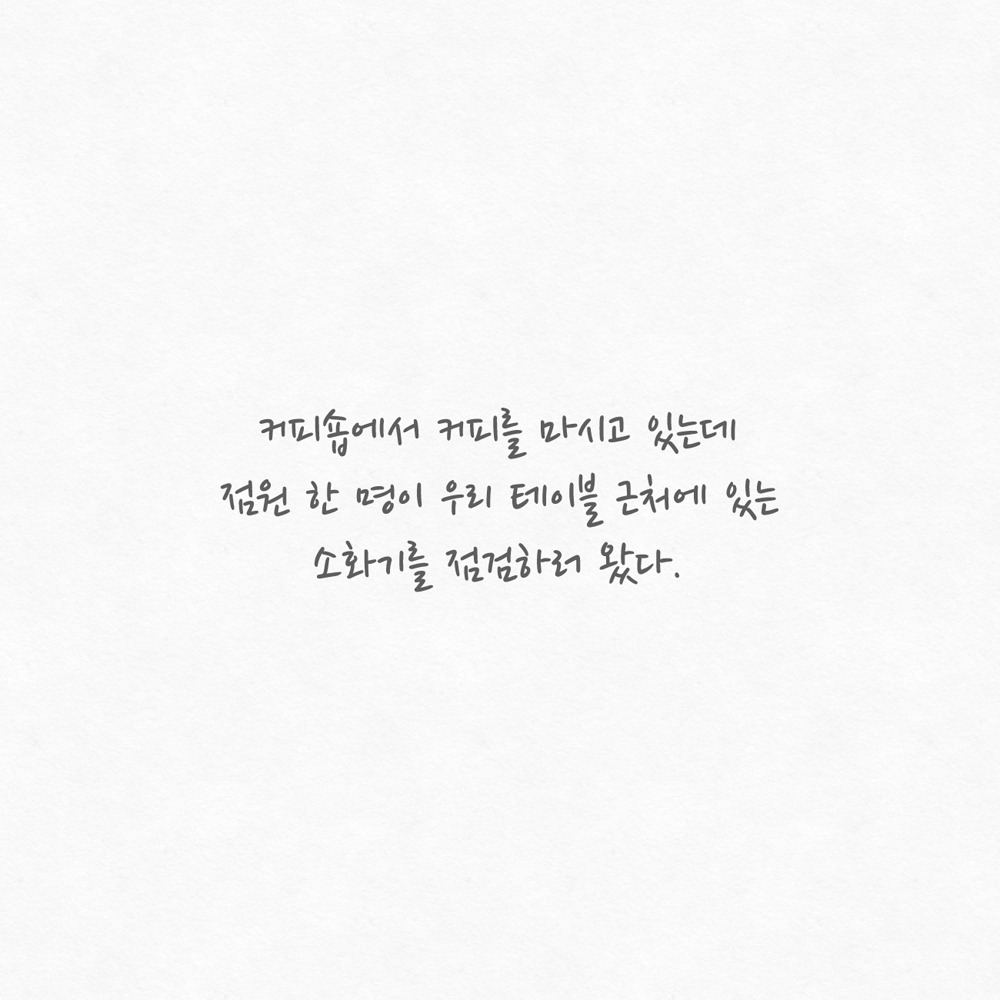 커피숍에서 커피를 마시고 있는데
점원 한 명이 우리 테이블 근처에 있는
소화기를 점검하러 왔다.